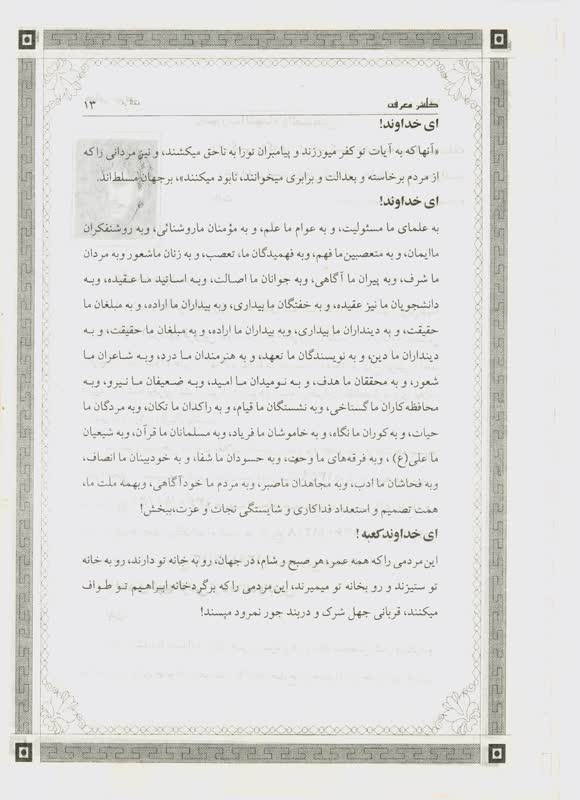 گلشن معرفت ۱۳
ای خداوند!
«آنها که به آیات تو کفر میورزند و پیامبران تو را به ناحق میکشند، و نیز مردانی را که
از مردم برخاسته و بعدالت و برابری میخوانند، نابود میکنند»، بر جهان مسلط‌اند.
ای خداوند!
به علمای ما مسئولیت، و به عوام ما علم، و به مؤمنان ما روشنائی، و به روشنفکران
ما ایمان، و به متعصبین ما فهم، و به فهمیدگان ما، تعصب، و به زنان ما شعور و به مردان
ما شرف، و به پیران ما آگاهی، و به جوانان ما اصالت، و به اساتید ما عقیده، و به
دانشجویان ما نیز عقیده، و به خفتگان ما بیداری، و به بیداران ما اراده، و به مبلغان ما
حقیقت، و به دینداران ما بیداری، و به بیداران ما اراده، و به مبلغان ما حقیقت، و به
دینداران ما دین، و به نویسندگان ما تعهد، و به هنرمندان ما درد، و به شاعران ما
شعور، و به محققان ما هدف، و به نومیدان ما امید، و به ضعیفان ما نیرو، و به
محافظه کاران ما گستاخی، و به نشستگان ما قیام، و به راکدان ما تکان، و به مردگان ما
حیات، و به کوران ما نگاه، و به خاموشان ما فریاد، و به مسلمانان ما قرآن، و به شیعیان
ما علی(ع) ، و به فرقه‌های ما وحدت، و به حسودان ما شفا، و به خودبینان ما انصاف،
و به فحاشان ما ادب، و به مجاهدان ما صبر، و به مردم ما خودآگاهی، و بهمه ملت ما،
همت تصمیم و استعداد فداکاری و شایستگی نجات و عزت، ببخش!
ای خداوند کعبه!
این مردمی را که همه عمر، هر صبح و شام، در جهان، رو به خانه تو دارند، رو به خانه
تو ستیزند و رو بخانه تو میمیرند، این مردمی را که برگرد خانه ابراهیم تو طواف
میکنند، قربانی جهل شرک و در بند جور نمرود مپسند!